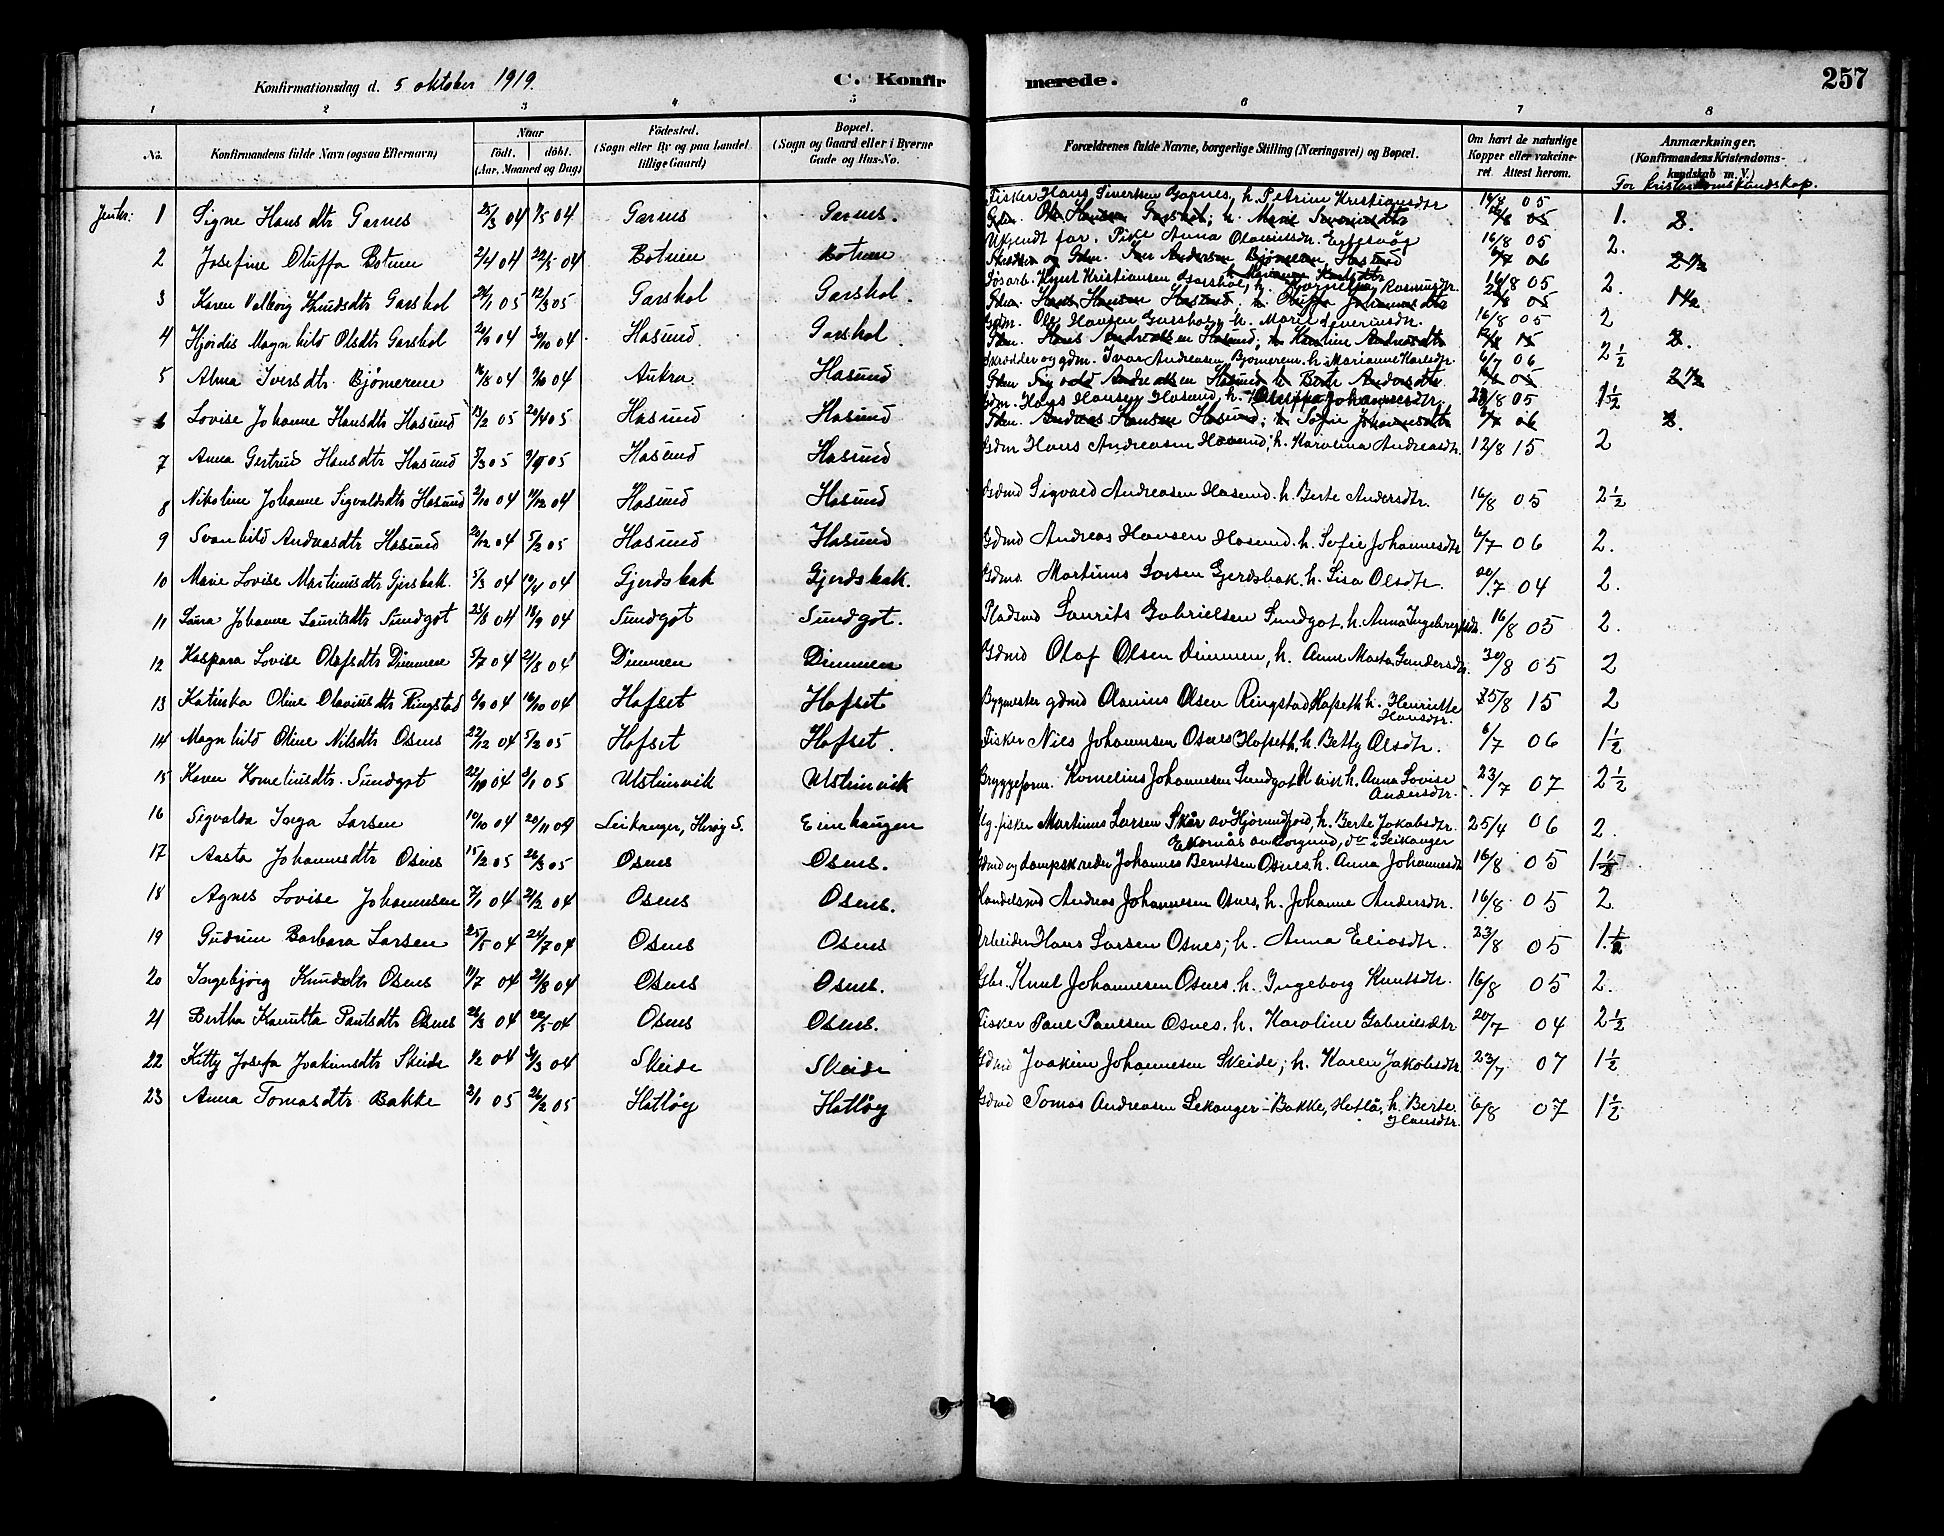 Konfirmationsdag d. 5 oktober 1919. C. Konfirmerede. 257
1 2 3 4 5 6 7 8
No. Konfirmandens fulde Navn (ogsaa Efternavn) Naar født. døbt. (Aar, Maaned og Dag) Fødested. (Sogn eller By og paa Landet tillige Gaard) Bopæl. (Sogn og Gaard eller i Byerne Gade og Hus-No.) Forældrenes fulde Navne, borgerlige Stilling (Næringsvei) og Bopæl. Om havt de naturlige Kopper eller vakcineret. Attest herom. Anmærkninger. (Konfirmandens Kristendomskundskab m. V.)
For kristendomskundskap.
Jenter: 1 Signe Hansdtr Garnes 25/3 04 04 Garnes Garnes. Fisker Hans Sivertsen Garnes, h. Petrine Kristiansdtr 16/8 05 1.
2 Josefine Oluffa Botnen 2/4 04 22/5 04 Botnen Botnen Ukjendt far. Pike Anna 16/8 05 2.
3 Karen Valborg Knudsdtr Garshol 05 12/3 05 Garshol Garshol. Knut Kristiansen Garshol, h. Rasmusdtr. 16/8 05 2.
4 Hjördis Magnhild Olsdtr Garshol 20/9 04 30/10 04 Hasund Garshol. Gdm. Ole Hansen Garshol, h. Marie Severinsdtr. 16/8 05 2
5 Alma Iversdtr Bjömerem 16/8 04 04 Aukra Hasund Skrædder og gdm. Ivar Andreasen Bjömerem h. Marianne Karlsdtr. 6/7 06 2 1/2
6 Lovise Johanne Hansdtr Hasund 13/2 05 05 Hasund Hasund Gdm. Hans Hansen Hasund, h. Oluffa Johannesdtr. 05 1 1/2
7 Anna Gertrud Hansdtr Hasund 05 05 Hasund Hasund Gdm Hans Andreasen Hasund; h. Karolina Andreasdtr. 12/8 15 2
8 Nikoline Johanne Sigvaldsdtr Hasund 2/10 04 11/12 04 Hasund Hasund Gdmd Sigvald Andreasen Hasund. h. Berte Andersdtr. 16/8 05 2 1/2
9 Svanhild Andreasdtr Hasund 20/12 04 5/2 05 Hasund Hasund Gdmd Andreas Hansen Hasund. h. Sofie Johannesdtr 6/7 06 2.
10 Marie Lovise Martinusdtr Gjersbak. 5/3 04 10/4 04 Gjerdsbak Gjerdsbak. Gdmd. Martinus Larsen Gjerdsbak h. Lisa Olsdtr. 20/7 04 2.
11 Laura Johanne Lauritsdtr Sundgot 23/8 04 18/9 04 Sundgot Sundgot. Pladsmd Laurits Gabrielsen Sundgot. h. Anna Ingebregtsdtr. 16/8 05 2.
12 Kaspara Lovise Olafsdtr Dimmen 5/7 04 21/8 04 Dimmen Dimmen Gdmd Olaf Olsen Dimmen, h. Anne Marta Gundersdtr. 30/8 05 2
13 Katinka Oline Olaviusdtr Ringstad 04 16/10 04 Hofset Hofset Bygmester gdmd Olavius Olsen Ringstad Hofseth h. Henriette Hansdtr. 25/8 15 2
14 Magnhild Oline Nilsdtr Osnes 22/12 04 5/2 05 Hofset Hofset. Fisker Nils Johannesen Osnes Hofseth, h. Betty Olsdtr. 6/7 06 1 1/2
15 Karen Korneliusdtr. Sundgot 22/10 04 05 Ulsteinvik Ulsteinvik Bryggeform. Kornelius Johannesen Sundgot h. Anna Lovise Andersdtr. 23/7 07 2 1/2
16 Sigvalda Inga Larsen 10/10 04 20/11 04 Leikanger, Herøy S. Einehaugen fisker Martinus Larsen Skår av Hjörundfjord, h. Berte Jakobsdtr. Ekornås av Borgund, do i Leikanger 25/4 06 2.
17 Aasta Johannesdtr Osnes 15/2 05 26/3 05 Osnes Osnes. Gdmd og dampskreder Johannes Berntsen Osnes. h. Anna Johannesdtr 16/8 05 1 1/2
18 Agnes Lovise Johannesen 7/1 04 21/2 04 Osnes Osnes. Handelsmd Andreas Johannesen Osnes, h. Johanne Andersdtr. 16/8 05 2
19 Gudrun Barbara Larsen 25/5 04 24/7 04 Osnes Osnes Arbeider Hans Larsen Osnes; h. Anna Eliasdtr. 23/8 05 1 1/2
20 Ingebjörg Knudsdtr Osnes 11/7 04 21/8 04 Osnes Osnes. Gbr. Knut Johannesen Osnes. h. Ingeborg Knutsdtr. 16/8 05 2.
21 Bertha Kamitta Paulsdtr Osnes 28/3 04 22/5 04 Osnes Osnes. Fisker Paul Paulsen Osnes. h. Karoline Gabrielsdtr 20/7 04 2 1/2
22 Kitty Josefa Joakimsdtr Skeide 1/2 04 04 Skeide Skeide Gdmd Joakim Johannesen Skeide; h. Karen Jakobsdtr 23/7 07 1 1/2
23 Anna Tomasdtr Bakke 2/1 05 26/2 05 Hatløy Hatløy Gdmd Tomas Andreasen Lekanger-Bakke, Hetlå, h. Berte Hansdtr. 6/8 07 1 1/2